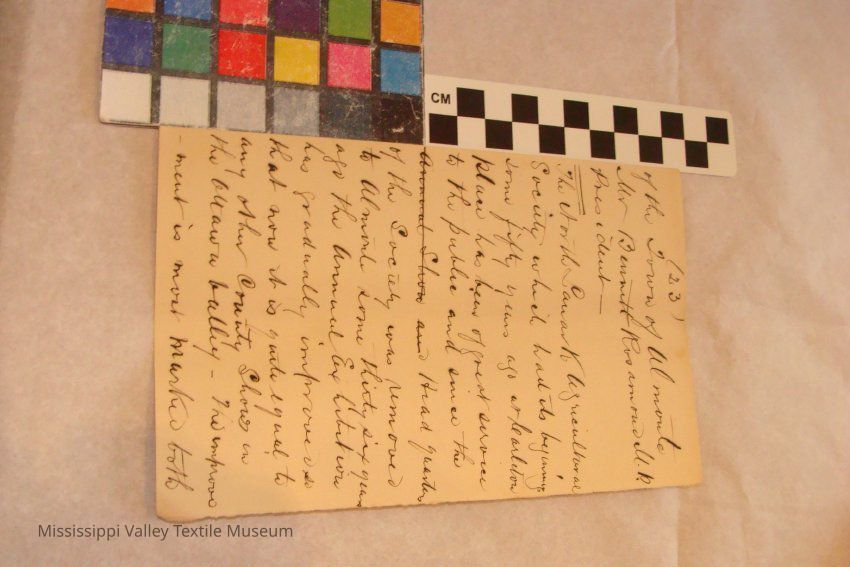 (23)
of the Town of Almonte
Mr Bennett Rosamond M.P.
President —
The North Lanark Agricultural
Society which had its beginning
some fifty years ago at Carleton
Place has been of great service
to the public and since the
annual Show and Head quarters
of the Society was removed
to Almonte some thirty six years
ago the Annual Exhibition
has gradually improved so
that now it is quite equal to
any other County Show in
the Ottawa Valley - The improve
-ment is most marked both
CM
Mississippi Valley Textile Museum